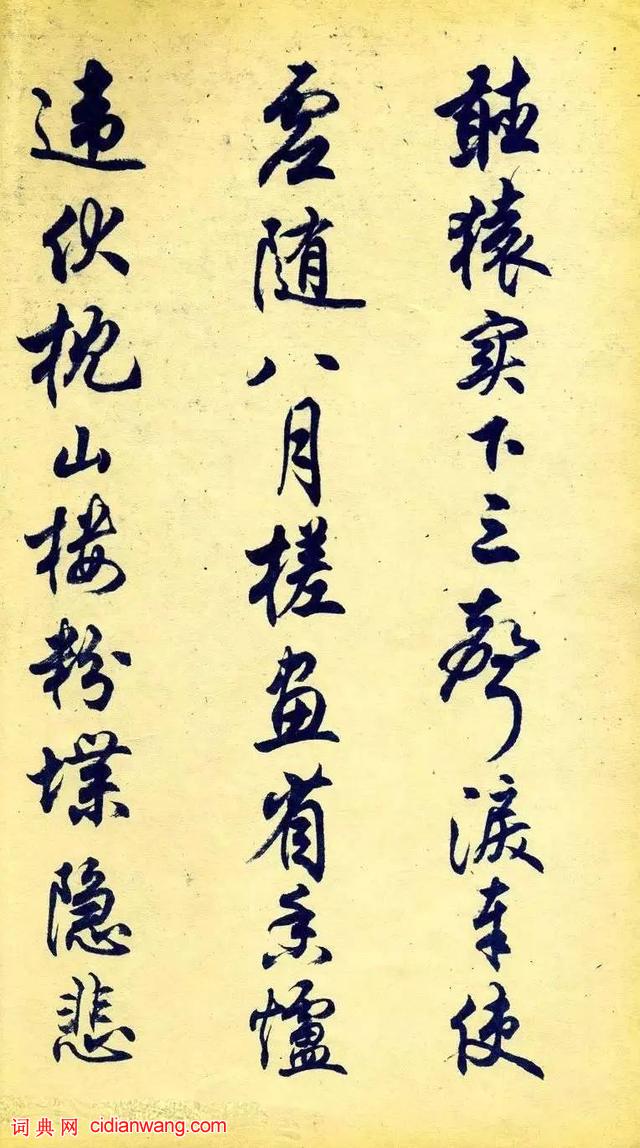 聽猿实下三聲淚奉使
虚随八月槎画省香爐
违伏枕山楼粉堞隐悲
词典网 cidianwang.com